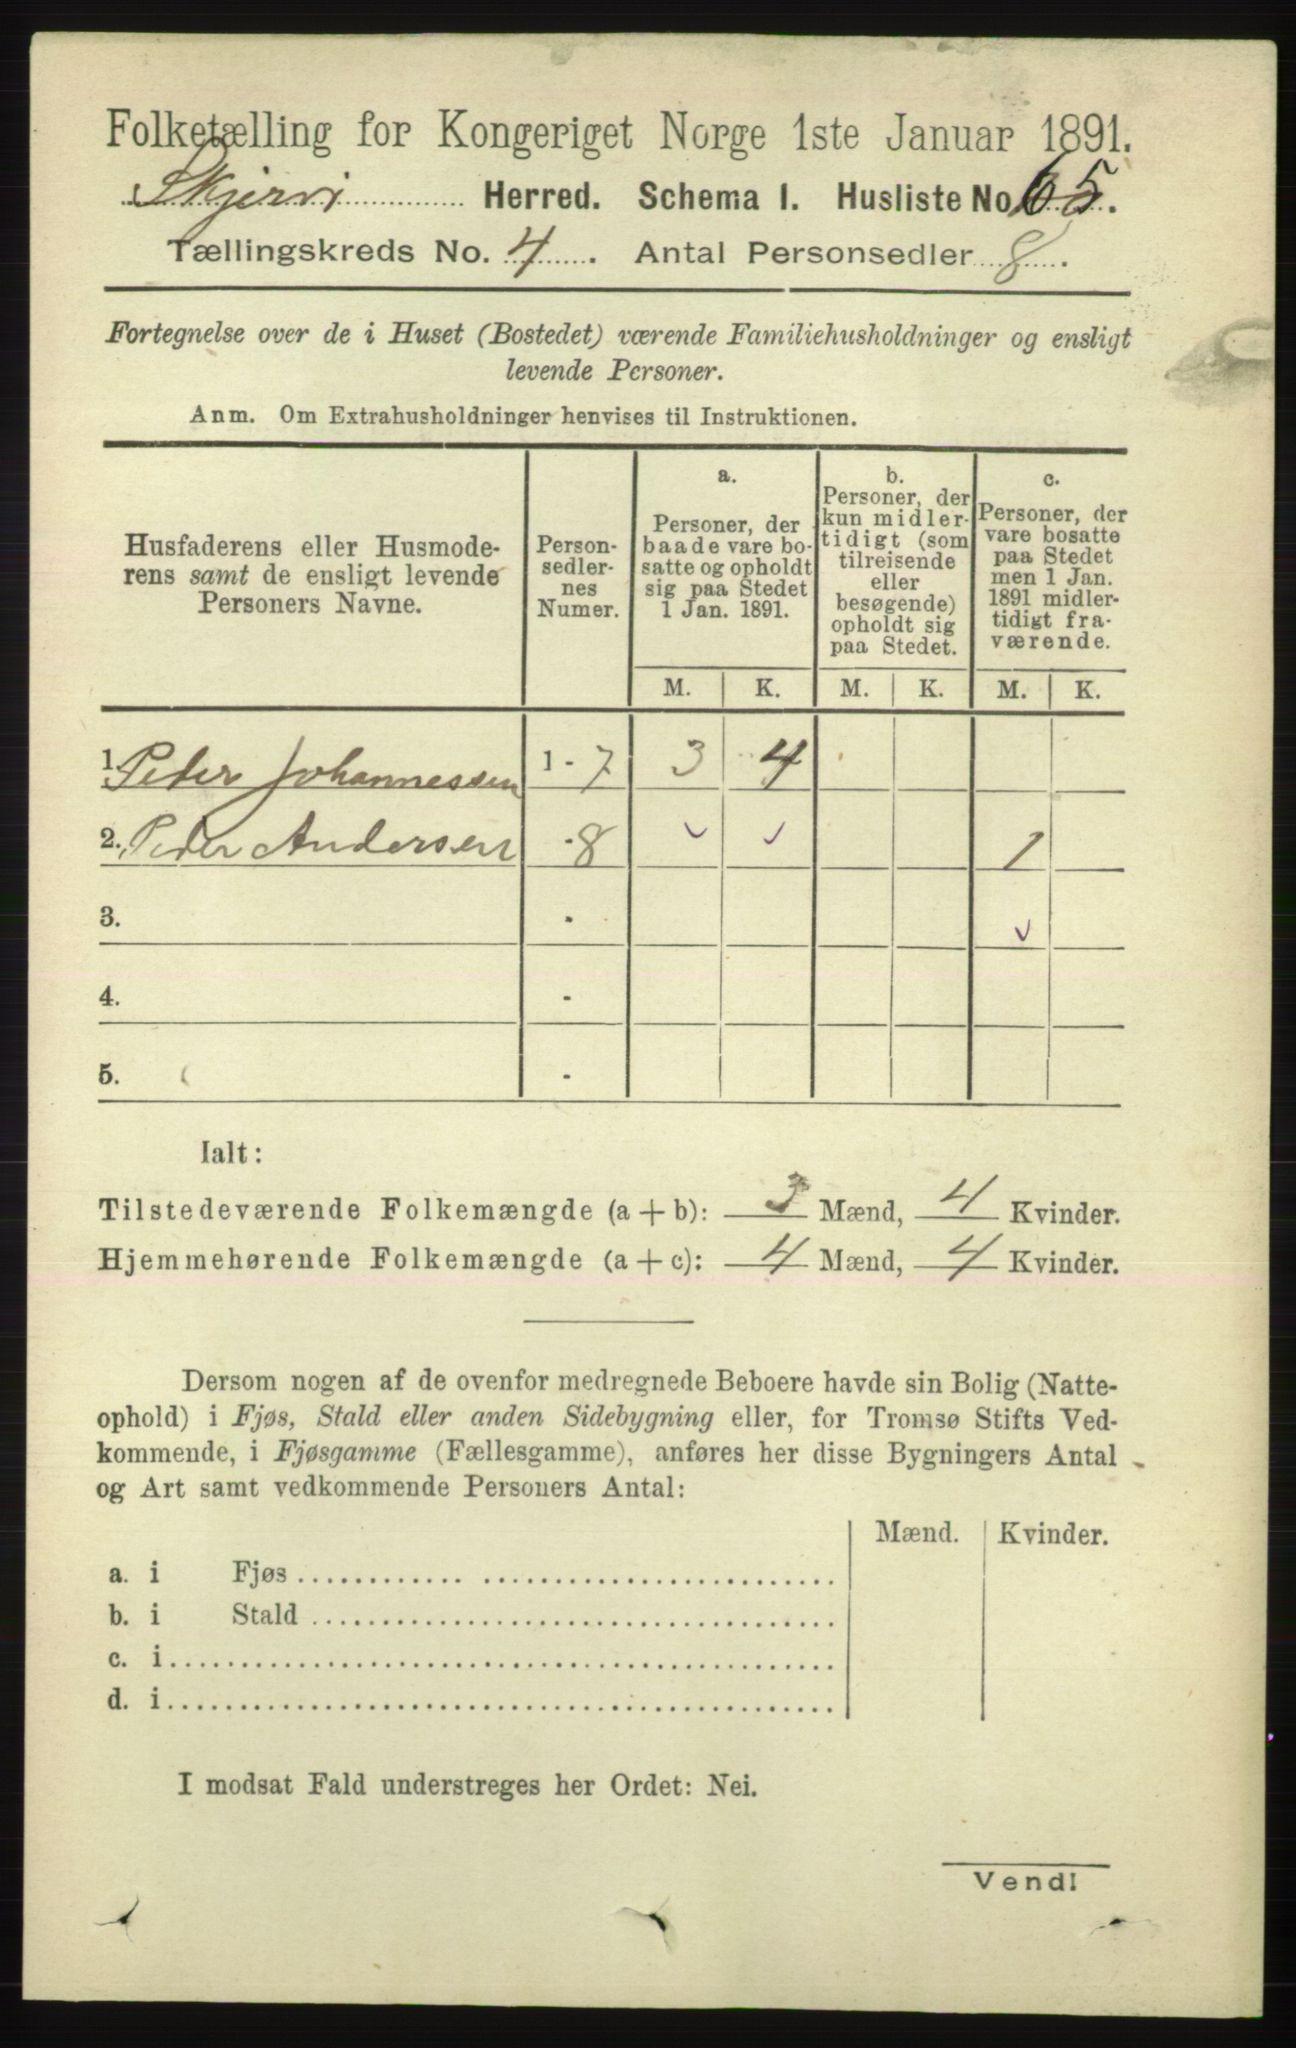 Folketælling for Kongeriget Norge 1ste Januar 1891.
Skjervi Herred. Schema I. Husliste No. 65.
Tællingskreds No. 4. Antal Personsedler 8.
Fortegnelse over de i Huset (Bostedet) værende Familiehusholdninger og ensligt
levende Personer.
Anm. Om Extrahusholdninger henvises til Instruktionen.
Husfaderens eller Husmode-
rens samt de ensligt levende
Personers Navne.
Person-
sedler-
nes
Numer.
a.
Personer, der
baade vare bo-
satte og opholdt
sig paa Stedet
1 Jan. 1891.
b.
Personer, der
kun midler-
tidigt (som
tilreisende
eller
besøgende)
opholdt sig
paa Stedet.
c.
Personer, der
vare bosatte
paa Stedet
men 1 Jan.
1891 midler-
tidigt fra-
værende.
M. K. M. K. M. K.
1. Peder Johannessen 1 - 7 3 4
2. Peder Andersen - 8 1
3. -
4. -
5. -
Ialt:
Tilstedeværende Folkemængde (a + b): 3 Mænd, 4 Kvinder.
Hjemmehørende Folkemængde (a + c): 4 Mænd, 4 Kvinder.
Dersom nogen af de ovenfor medregnede Beboere havde sin Bolig (Natte-
ophold) i Fjøs, Stald eller anden Sidebygning eller, for Tromsø Stifts Ved-
kommende, i Fjøsgamme (Fællesgamme), anføres her disse Bygningers Antal
og Art samt vedkommende Personers Antal:
Mænd. Kvinder.
a. i Fjøs
b. i Stald
c. i
d. i
I modsat Fald understreges her Ordet: Nei.
Vend!